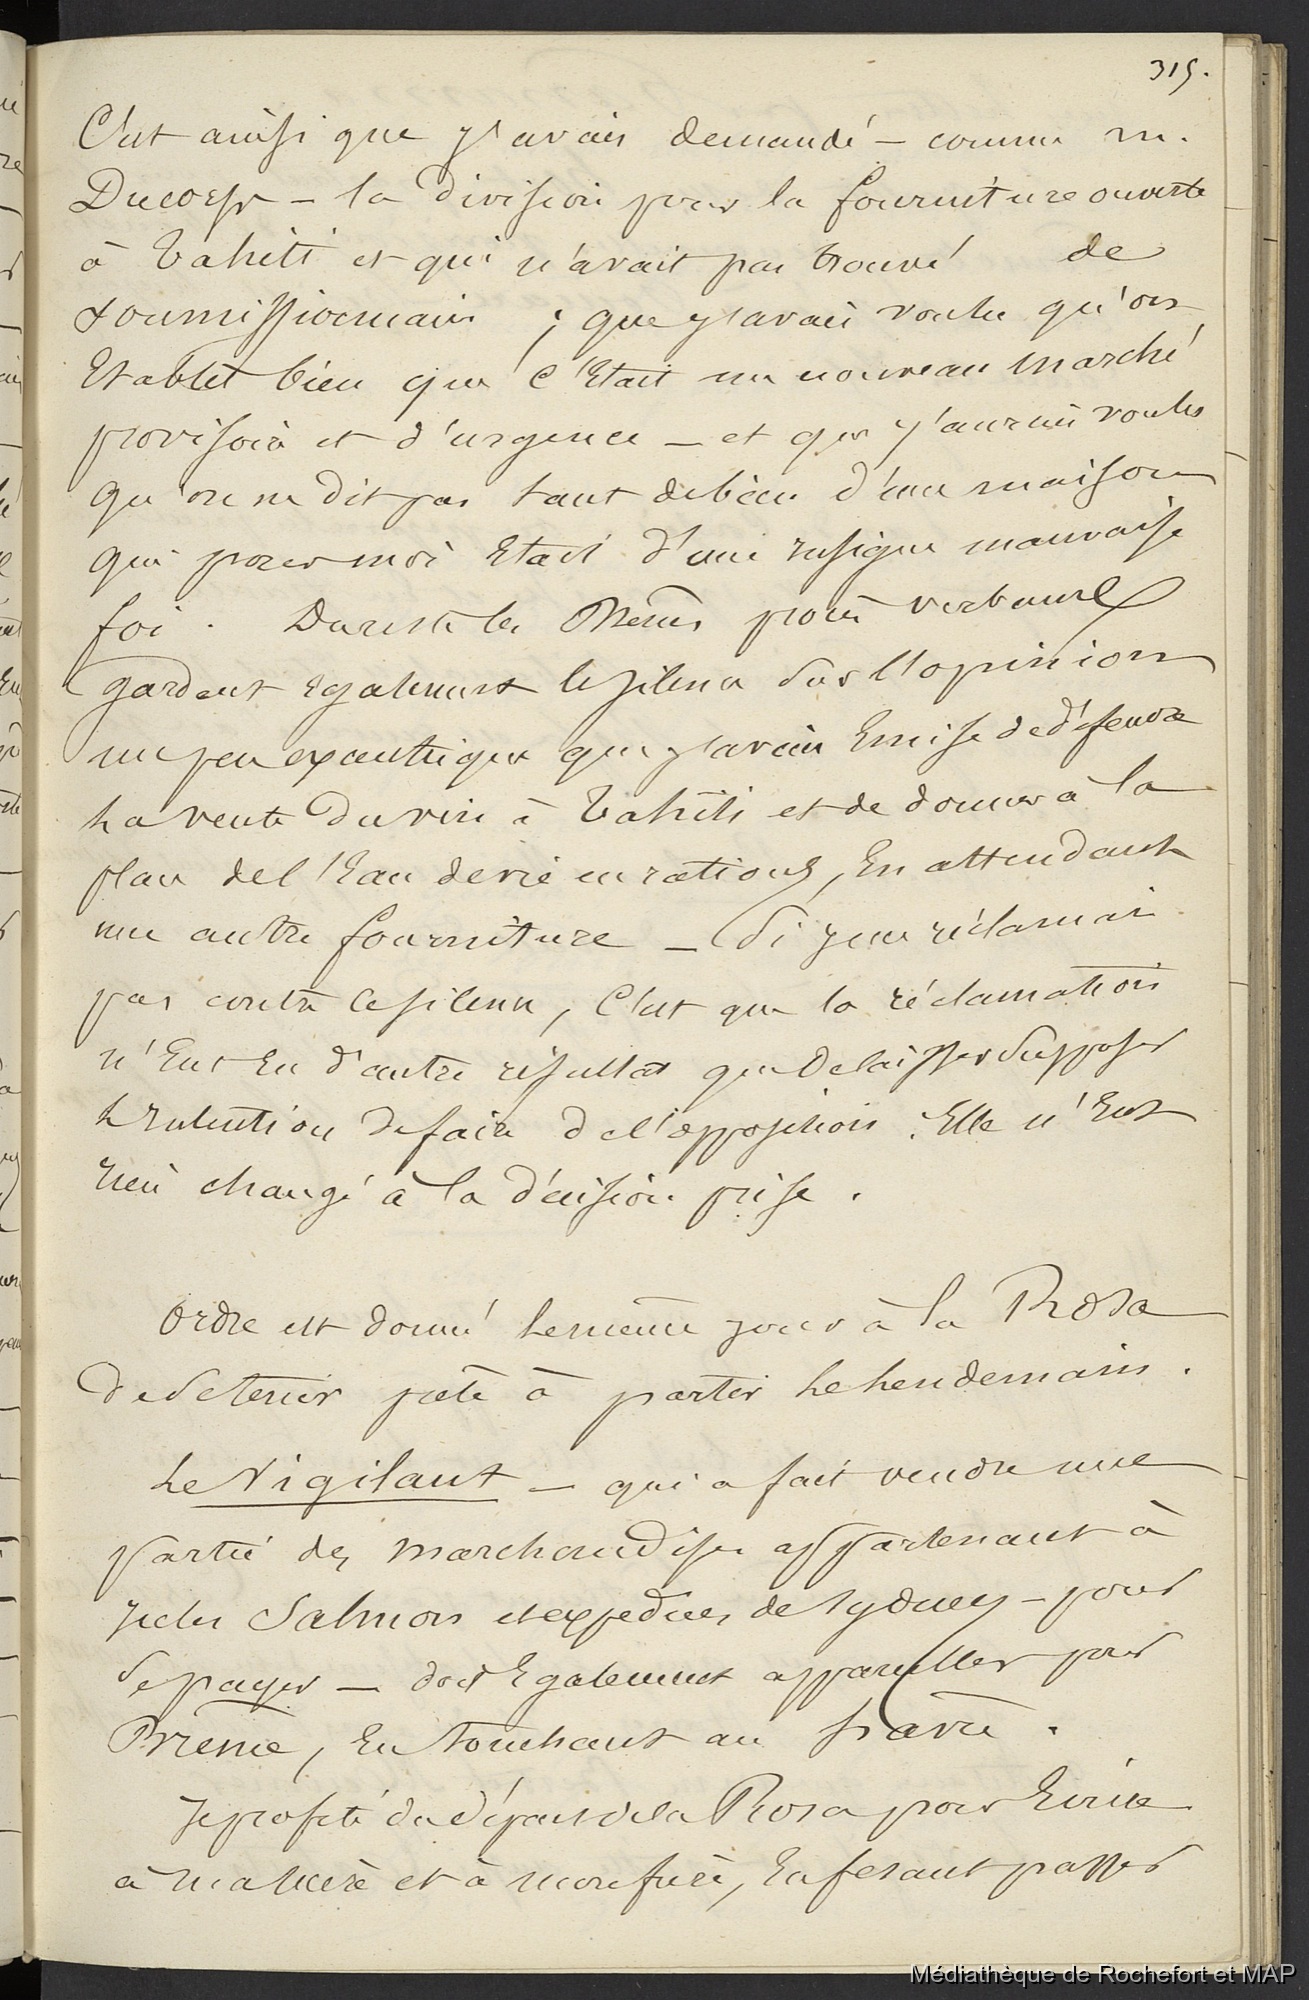 315.
C'est ainsi que j'avais demandé – comme M.
Ducorps – la division pour la fourniture ouverte
à Tahiti et qui n'avait pas trouvé de
soumissionnaire ; que j'avais voulu qu'on
Etablit bien que c'Etait un nouveau marché
provisoire et d'urgence – et que j'aurais voulu
qu'on ne dit pas tant de bien d'une maison
qui pour moi Etait d'une insigne mauvaise
foi. Du reste les Mêmes procès verbaux
gardent Egalement le silence sur l'opinion
un peu excentrique que j'avais Emise de défendre
La vente du vin à Tahiti et de donner à la
place de l'Eau de vie en rations, En attendant
une autre fourniture – Si je ne réclamai
pas contre ce silence, C'est que la réclamation
n'Eut Eu d'autre résultat que de laisser supposer
L'Intention de faire de l'opposition. Elle n'Eut
rien changé à la décision prise.
Ordre est donné Le même jour à la Rosa
de se tenir prête à partir Le Lendemain.
Le Vigilant – qui a fait vendre une
partie des marchandises appartenant à
Jules Salmon et expédiées de Sydney – pour
se payer – doit Egalement appareiller pour
Brême, En touchant au havre.
Je profite du départ de la Rosa pour Ecrire
à ma mère et à mon frère, En fesant passer
Médiathèque de Rochefort et MAP